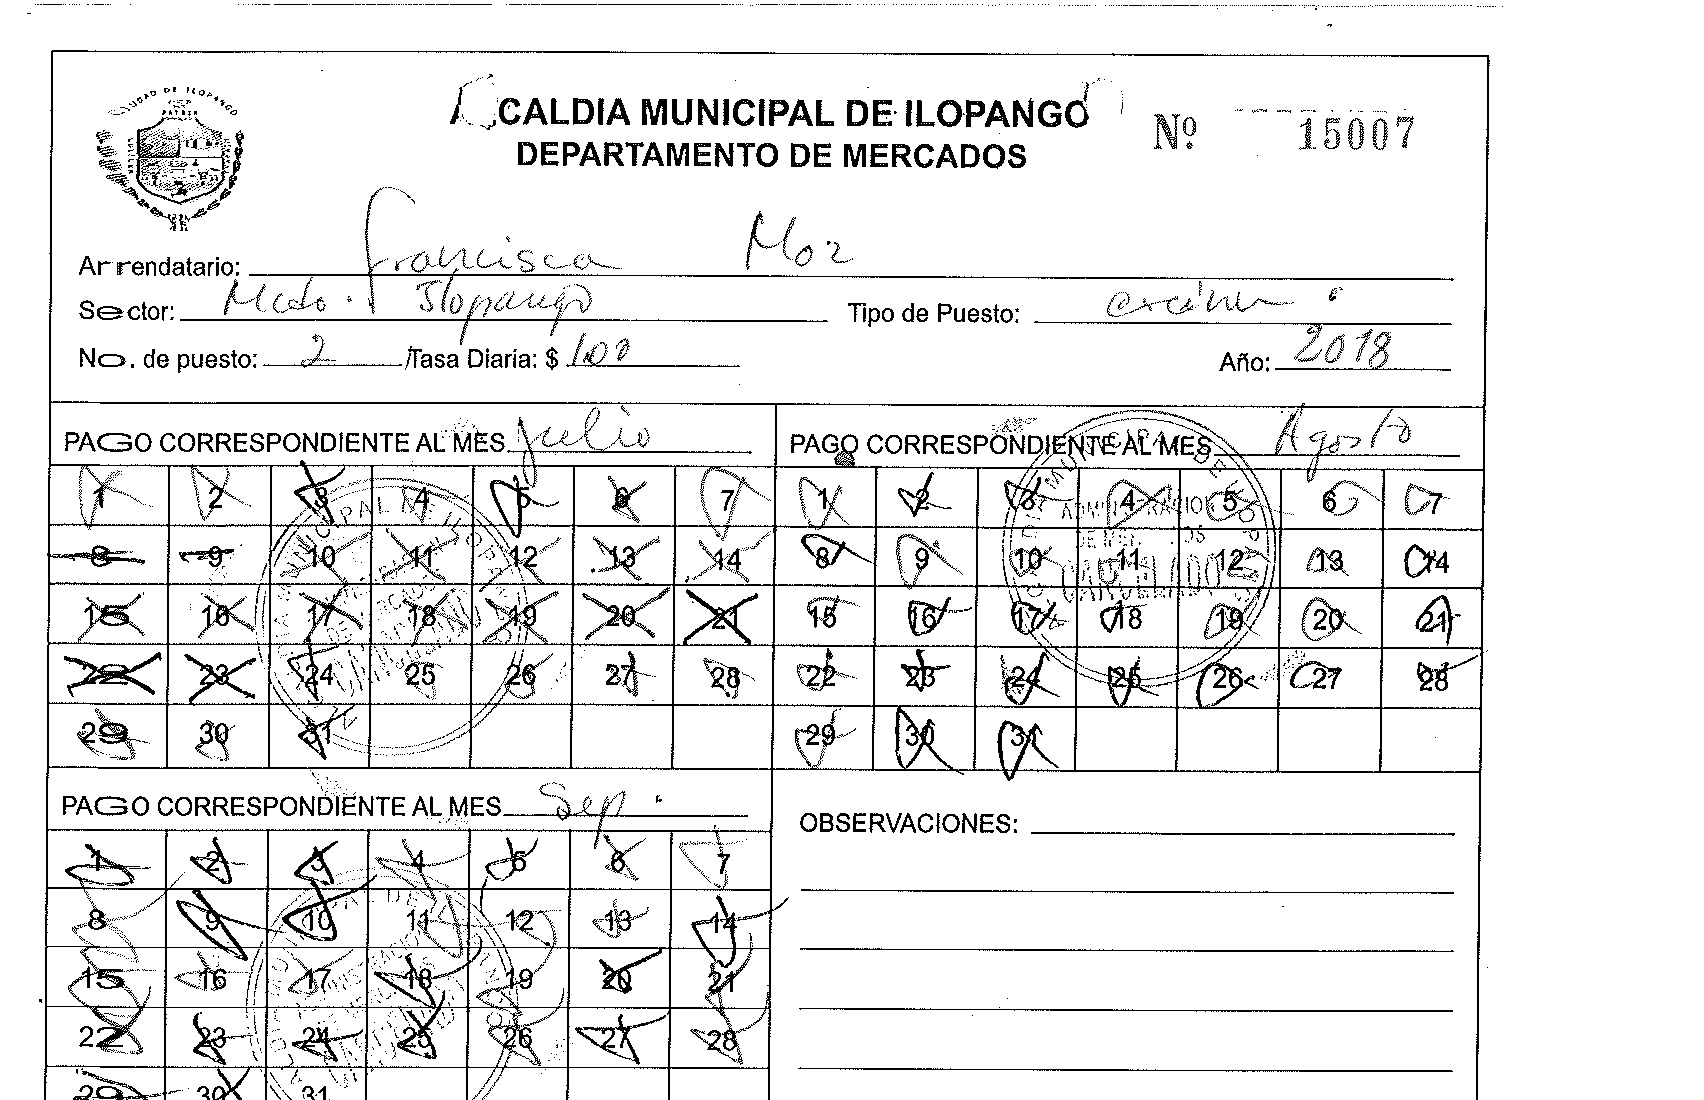 CIUDAD DE ILOPANGO
PATRIA
CALDIA MUNICIPAL DE ILOPANGO
DEPARTAMENTO DE MERCADOS
Nº 15007
Arrendatario: Francisca Moz
Sector: Mcdo. Ilopango
Tipo de Puesto:
No. de puesto: 2 /Tasa Diaria: $ 1.00
Año: 2018
PAGO CORRESPONDIENTE AL MES Julio
1 2 3 4 5 6 7
8 9 10 11 12 13 14
15 16 17 18 19 20 21
22 23 24 25 26 27 28
29 30 31
PAGO CORRESPONDIENTE AL MES Agosto
1 2 3 4 5 6 7
8 9 10 11 12 13 14
15 16 17 18 19 20 21
22 23 24 25 26 27 28
29 30 31
CANCELADO
PAGO CORRESPONDIENTE AL MES Sep.
1 2 3 4 5 6 7
8 9 10 11 12 13 14
15 16 17 18 19 20 21
22 23 24 25 26 27 28
29 30 31
OBSERVACIONES: